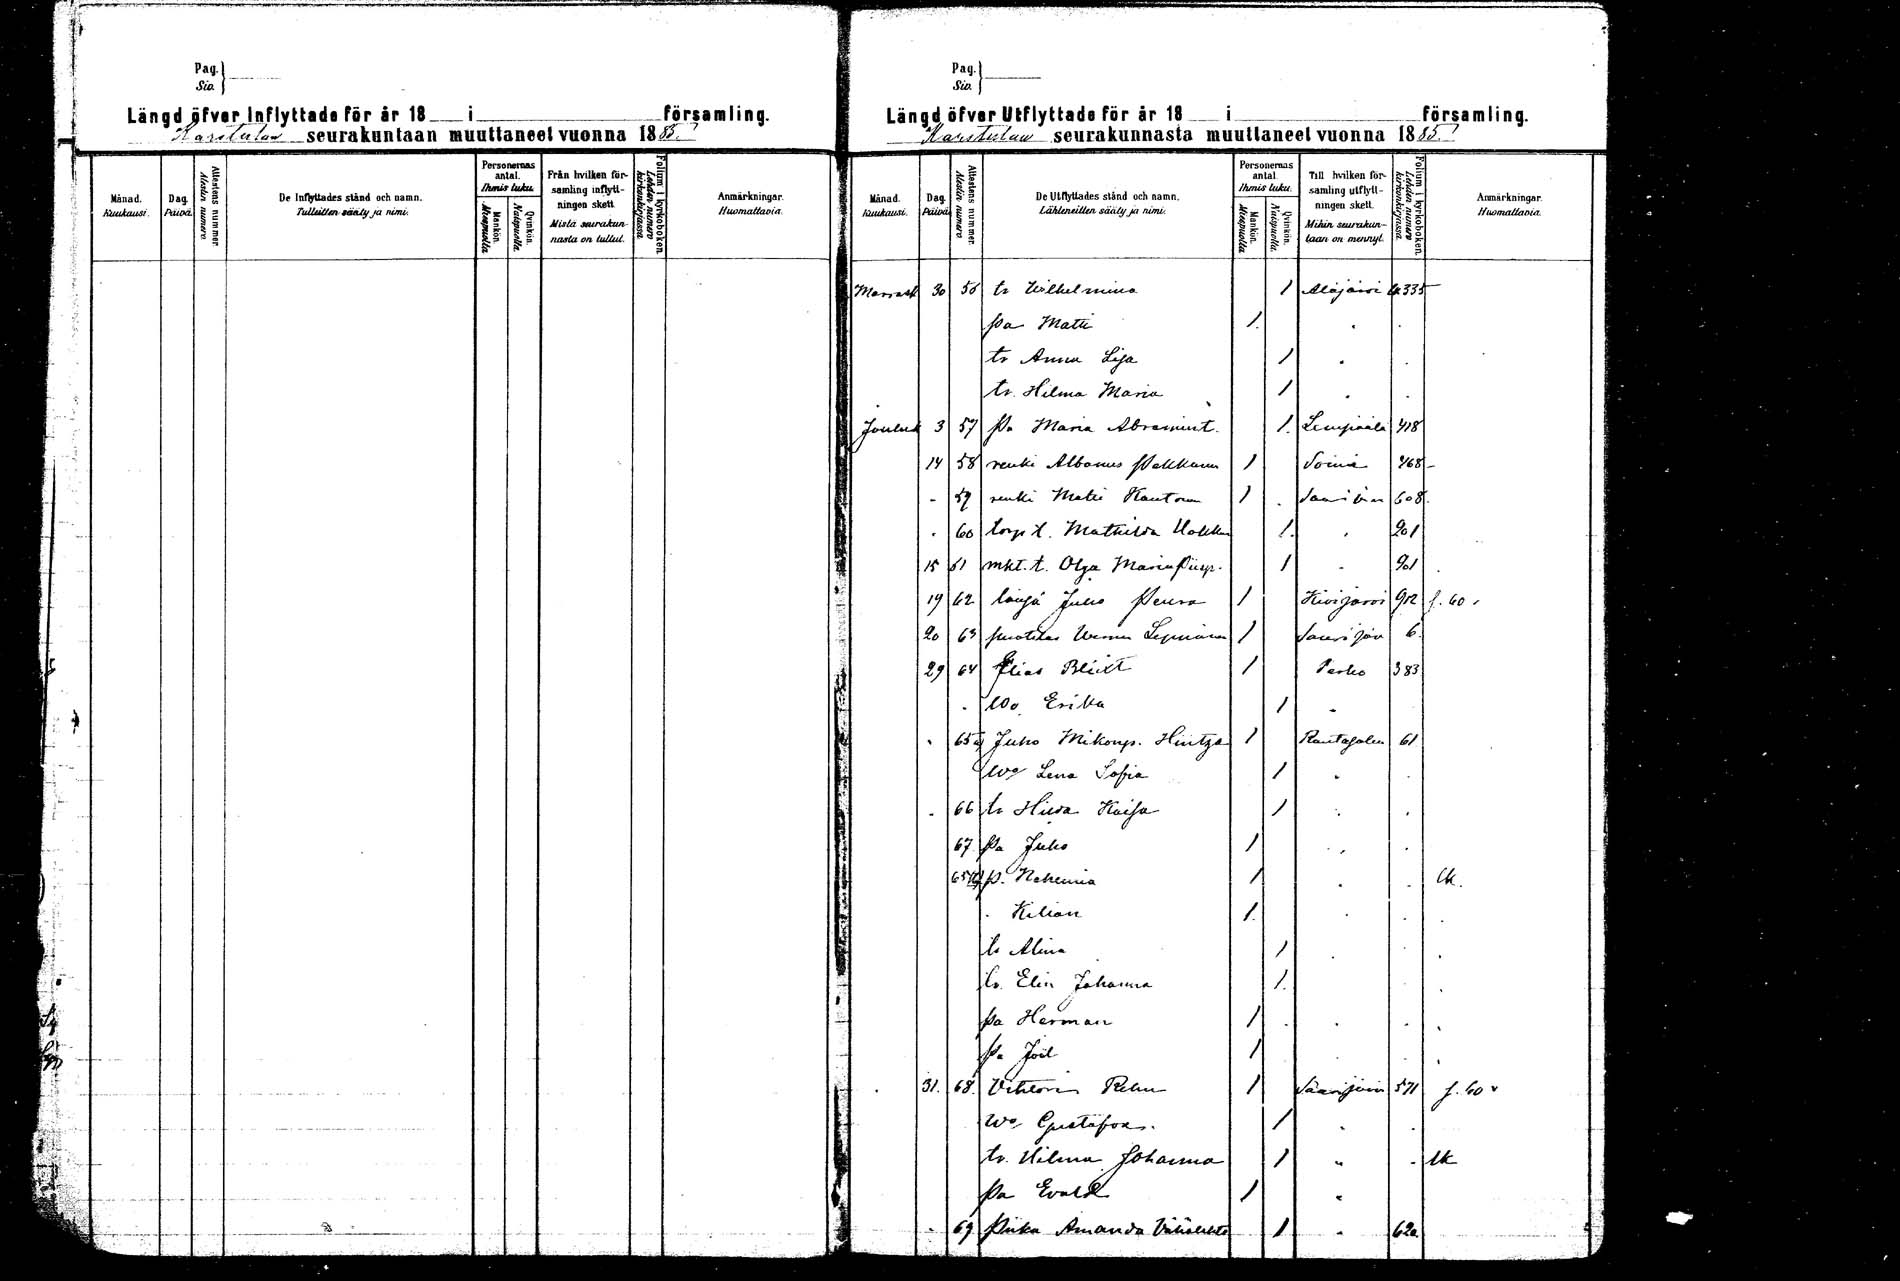 Pag.
Siv.
Längd öfver Inflyttade för år 18 i församling.
Karstulan seurakuntaan muuttaneet vuonna 1885.
Månad.
Kuukausi.
Dag.
Päivä.
Attestens nummer.
Alestin numero.
De Inflyttades stånd och namn.
Tulleitten sääty ja nimi.
Personernas antal.
Ihmis luku.
Mankön.
Miespuolia
Qvinkön.
Naispuolia.
Från hvilken för-
samling inflytt-
ningen skett.
Mistä seurakun-
nasta on tullut.
Folium i kyrkoboken.
Lehden numero kirkonkirjassa
Anmärkningar.
Huomattavia.
Pag.
Siv.
Längd öfver Utflyttade för år 18 i församling.
Karstulan seurakunnasta muuttaneet vuonna 1885.
Månad.
Kuukausi.
Dag.
Päivä.
Attestens nummer.
Alestin numero.
De Utflyttades stånd och namn.
Lähteneitten sääty ja nimi.
Personernas antal.
Ihmis luku.
Mankön.
Miespuolia
Qvinkön.
Naispuolia.
Till hvilken för-
samling utflytt-
ningen skett.
Mihin seurakun-
taan on mennyt.
Folium i kyrkoboken.
Lehden numero kirkonkirjassa
Anmärkningar.
Huomattavia.
Marrask 30 56 tr Wilhelmina 1 Alajärvi 335
pa Matti 1.
tr Anna Lisa 1
tr. Hilma Maria 1
Jouluk 3 57 Maria 1. Lempäälä 418
14 58 renki Albanus Pakkanen 1 Soini 468
59 renki Matti 1 608
60 torp t. Mathilda 1. 201
15 61 mkt. t. Olga Maria 1 201
19 62 Juho Peura 1 Kivijärvi 902 f. 60
20 63 1 6.
29 64 Elias Blixt 1 Perho 383
Wo Erika 1
65 a) Juho Mikonp. Hintza 1 61
Wo Lena Sofia 1
66 tr Hilda Kaisa 1
67 pa Juho 1
65 p. Nehemia 1 lk.
Kilian 1.
tr Alina 1
tr. Elin Johanna 1.
pa Herman 1
pa Joel 1
31. 68. Viktori 1 Saarijärvi 571 f. 60
Wo Gustafva. 1
tr. Hilma Johanna 1 lk
pa Evald 1
69 Piika Amanda 1 620